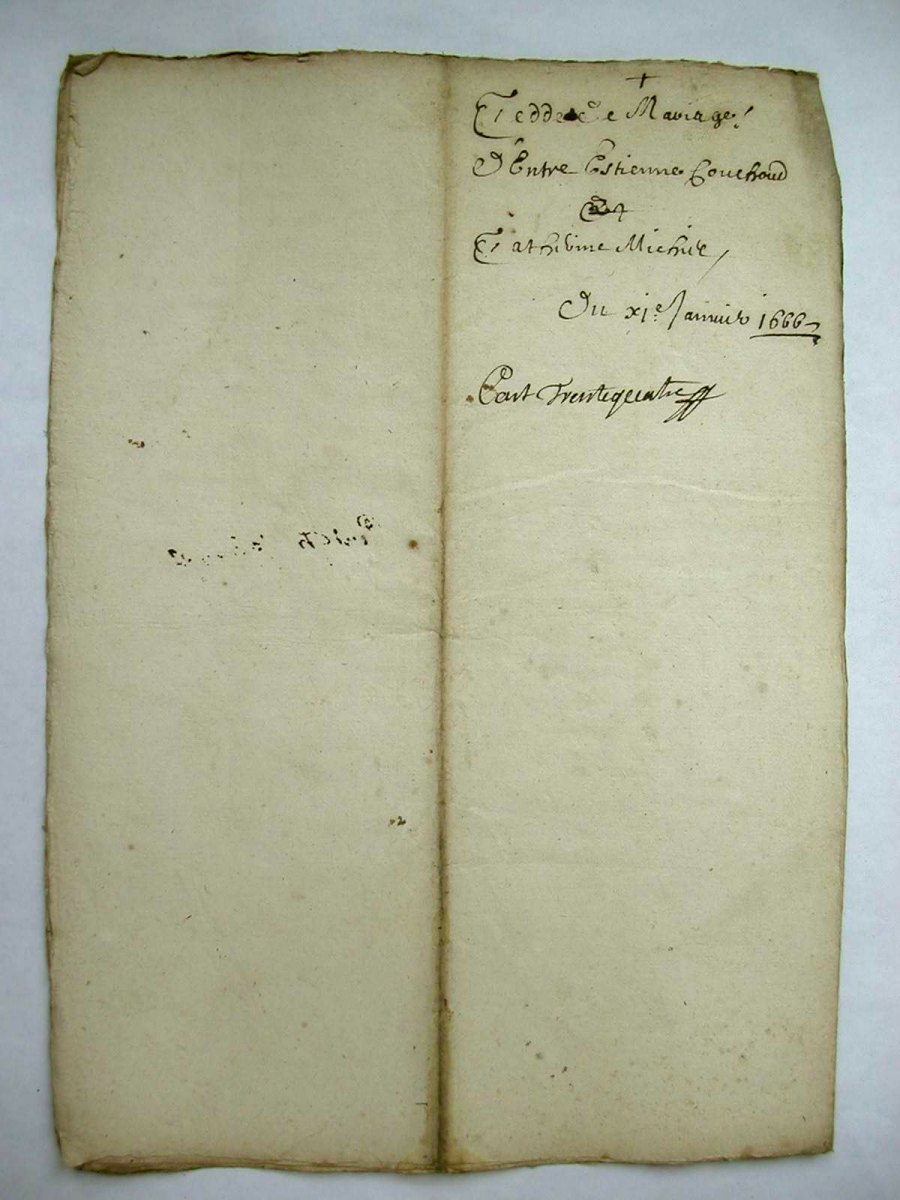 +
Cedde de Mariage
D'Entre Estienne Couchoud
Et
Catherine Michel
Du xi.e Janvier 1666
Cart Trentequatre